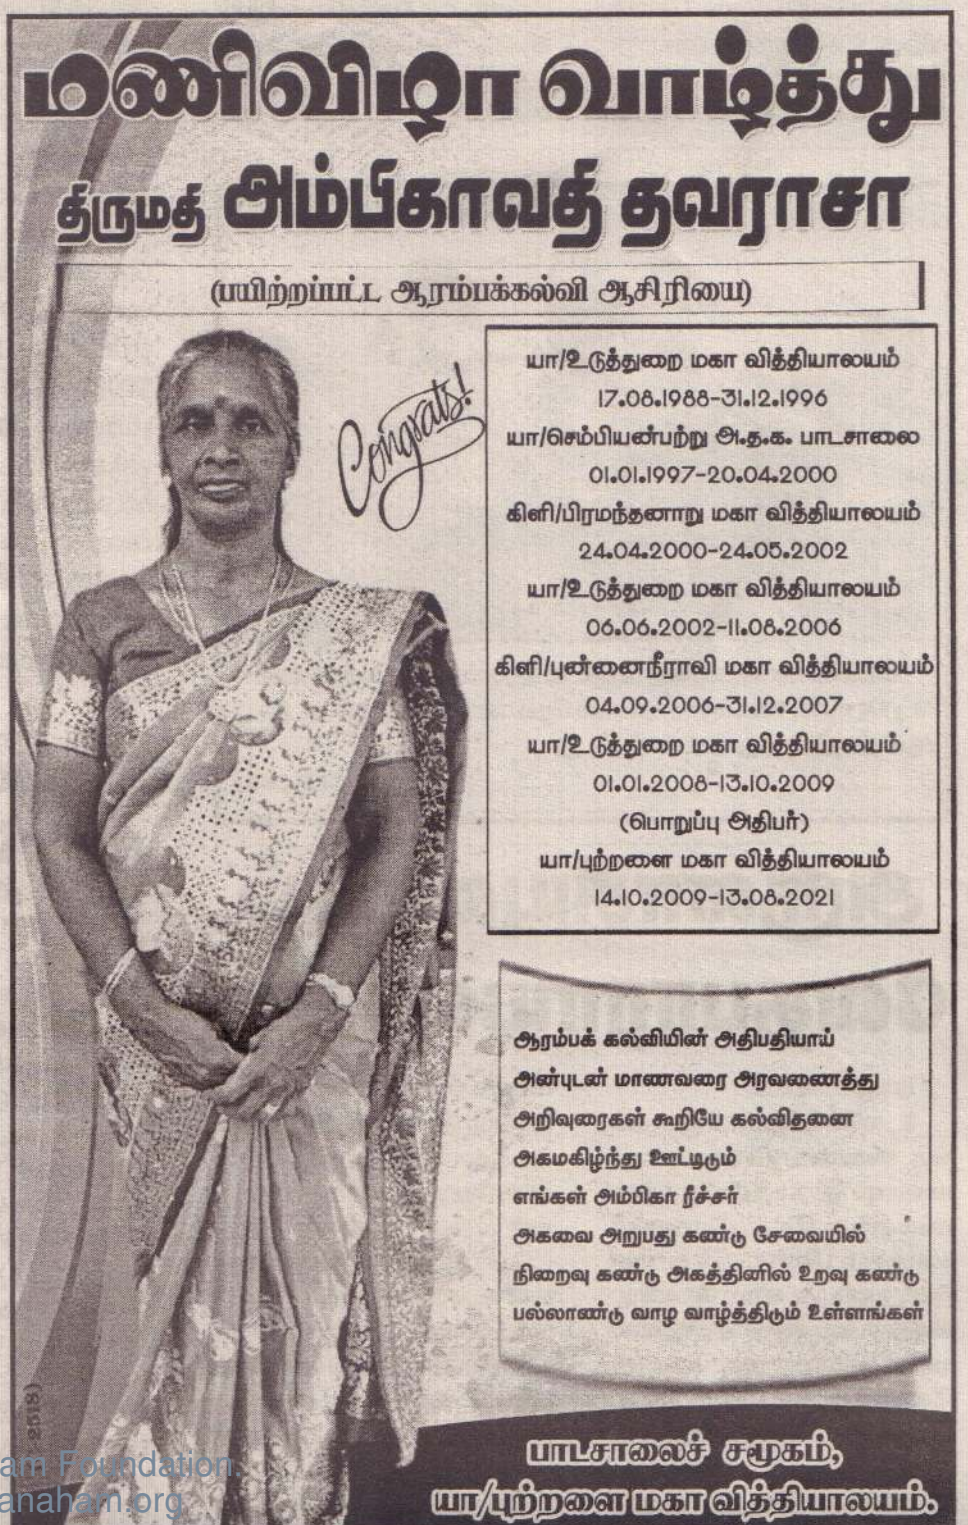 மணிவிழா வாழ்த்து
திருமதி அம்பிகாவதி தவராசா
(பயிற்றப்பட்ட ஆரம்பக்கல்வி ஆசிரியை)
Congrats!
யா/உடுத்துறை மகா வித்தியாலயம்
17.08.1988-31.12.1996
யா/செம்பியன்பற்று அ.த.க. பாடசாலை
01.01.1997-20.04.2000
கிளி/பிரமந்தனாறு மகா வித்தியாலயம்
24.04.2000-24.05.2002
யா/உடுத்துறை மகா வித்தியாலயம்
06.06.2002-11.08.2006
கிளி/புன்னைநீராவி மகா வித்தியாலயம்
04.09.2006-31.12.2007
யா/உடுத்துறை மகா வித்தியாலயம்
01.01.2008-13.10.2009
(பொறுப்பு அதிபர்)
யா/புற்றளை மகா வித்தியாலயம்
14.10.2009-13.08.2021
ஆரம்பக் கல்வியின் அதிபதியாய்
அன்புடன் மாணவரை அரவணைத்து
அறிவுரைகள் கூறியே கல்விதனை
அகமகிழ்ந்து ஊட்டிடும்
எங்கள் அம்பிகா ரீச்சர்
அகவை அறுபது கண்டு சேவையில்
நிறைவு கண்டு அகத்தினில் உறவு கண்டு
பல்லாண்டு வாழ வாழ்த்திடும் உள்ளங்கள்
2518)
பாடசாலைச் சமூகம்,
யா/புற்றளை மகா வித்தியாலயம்.
am Foundation.
anaham.org